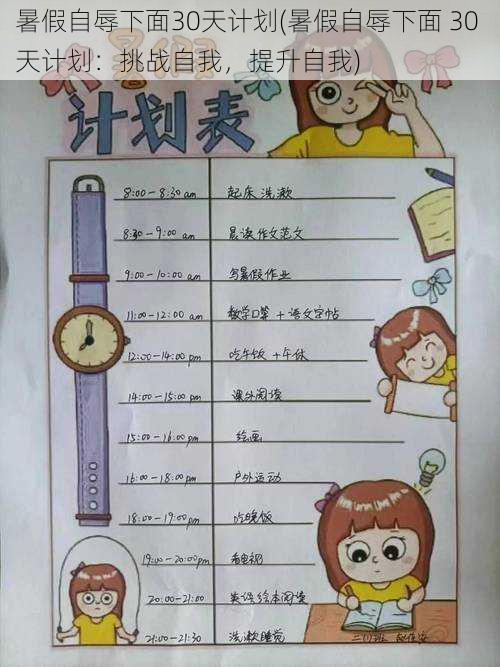 暑假自辱下面30天计划(暑假自辱下面 30
天计划：挑战自我，提升自我)
暑假
计划表
8:00-8:30 am 起床 洗漱
8:30-9:00 am 晨读作文范文
9:00-10:00 am 写暑假作业
11:00-12:00 am 数学口算 + 语文字帖
12:00-14:00 pm 吃午饭 +午休
14:00-15:00 pm 课外阅读
15:00-16:00 pm 绘画
16:00-18:00 pm 户外运动
18:00-19:00 pm 吃晚饭
19:00-20:00 pm 看电视
20:00-21:00 pm 英语绘本阅读
21:00-21:30 洗漱睡觉